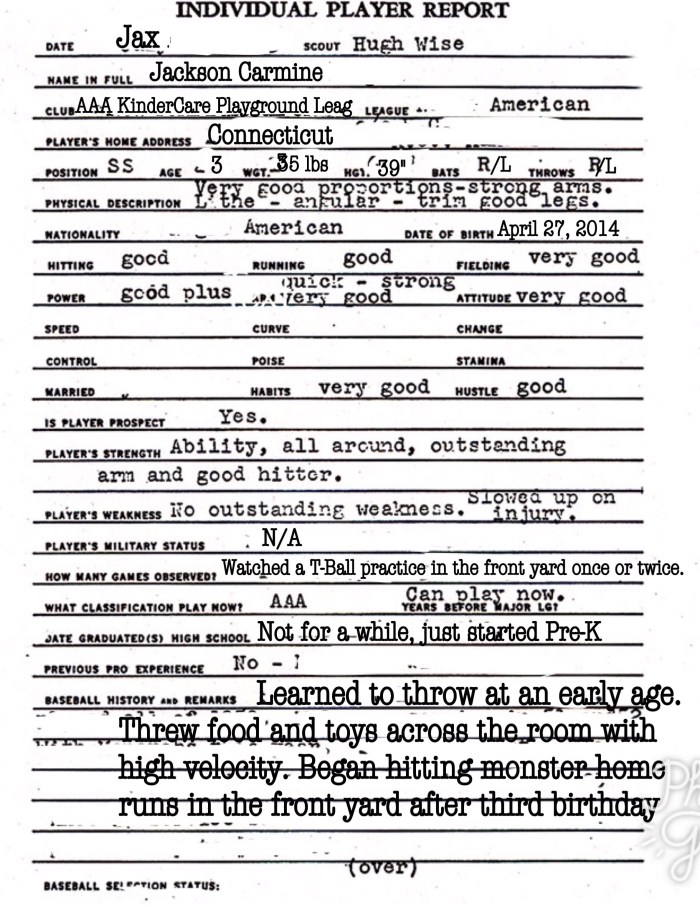 INDIVIDUAL PLAYER REPORT
DATE Jax SCOUT Hugh Wise
NAME IN FULL Jackson Carmine
CLUB AAA KinderCare Playground Leag LEAGUE American
PLAYER'S HOME ADDRESS Connecticut
POSITION SS AGE 3 WGT. 35 lbs HGT. 39" BATS R/L THROWS R/L
Very good proportions-strong arms.
PHYSICAL DESCRIPTION L the - angular - trim good legs.
NATIONALITY American DATE OF BIRTH April 27, 2014
HITTING good RUNNING good FIELDING very good
quick - strong
POWER good plus very good ATTITUDE very good
SPEED CURVE CHANGE
CONTROL POISE STAMINA
MARRIED HABITS very good HUSTLE good
IS PLAYER PROSPECT Yes.
PLAYER'S STRENGTH Ability, all around, outstanding
arm and good hitter.
Slowed up on
PLAYER'S WEAKNESS No outstanding weakness. injury.
PLAYER'S MILITARY STATUS N/A
HOW MANY GAMES OBSERVED? Watched a T-Ball practice in the front yard once or twice.
Can play now.
WHAT CLASSIFICATION PLAY NOW? AAA YEARS BEFORE MAJOR LG?
DATE GRADUATED(S) HIGH SCHOOL Not for a while, just started Pre-K
PREVIOUS PRO EXPERIENCE No -
BASEBALL HISTORY AND REMARKS Learned to throw at an early age.
Threw food and toys across the room with
high velocity. Began hitting monster home
runs in the front yard after third birthday
(over)
BASEBALL SELECTION STATUS: